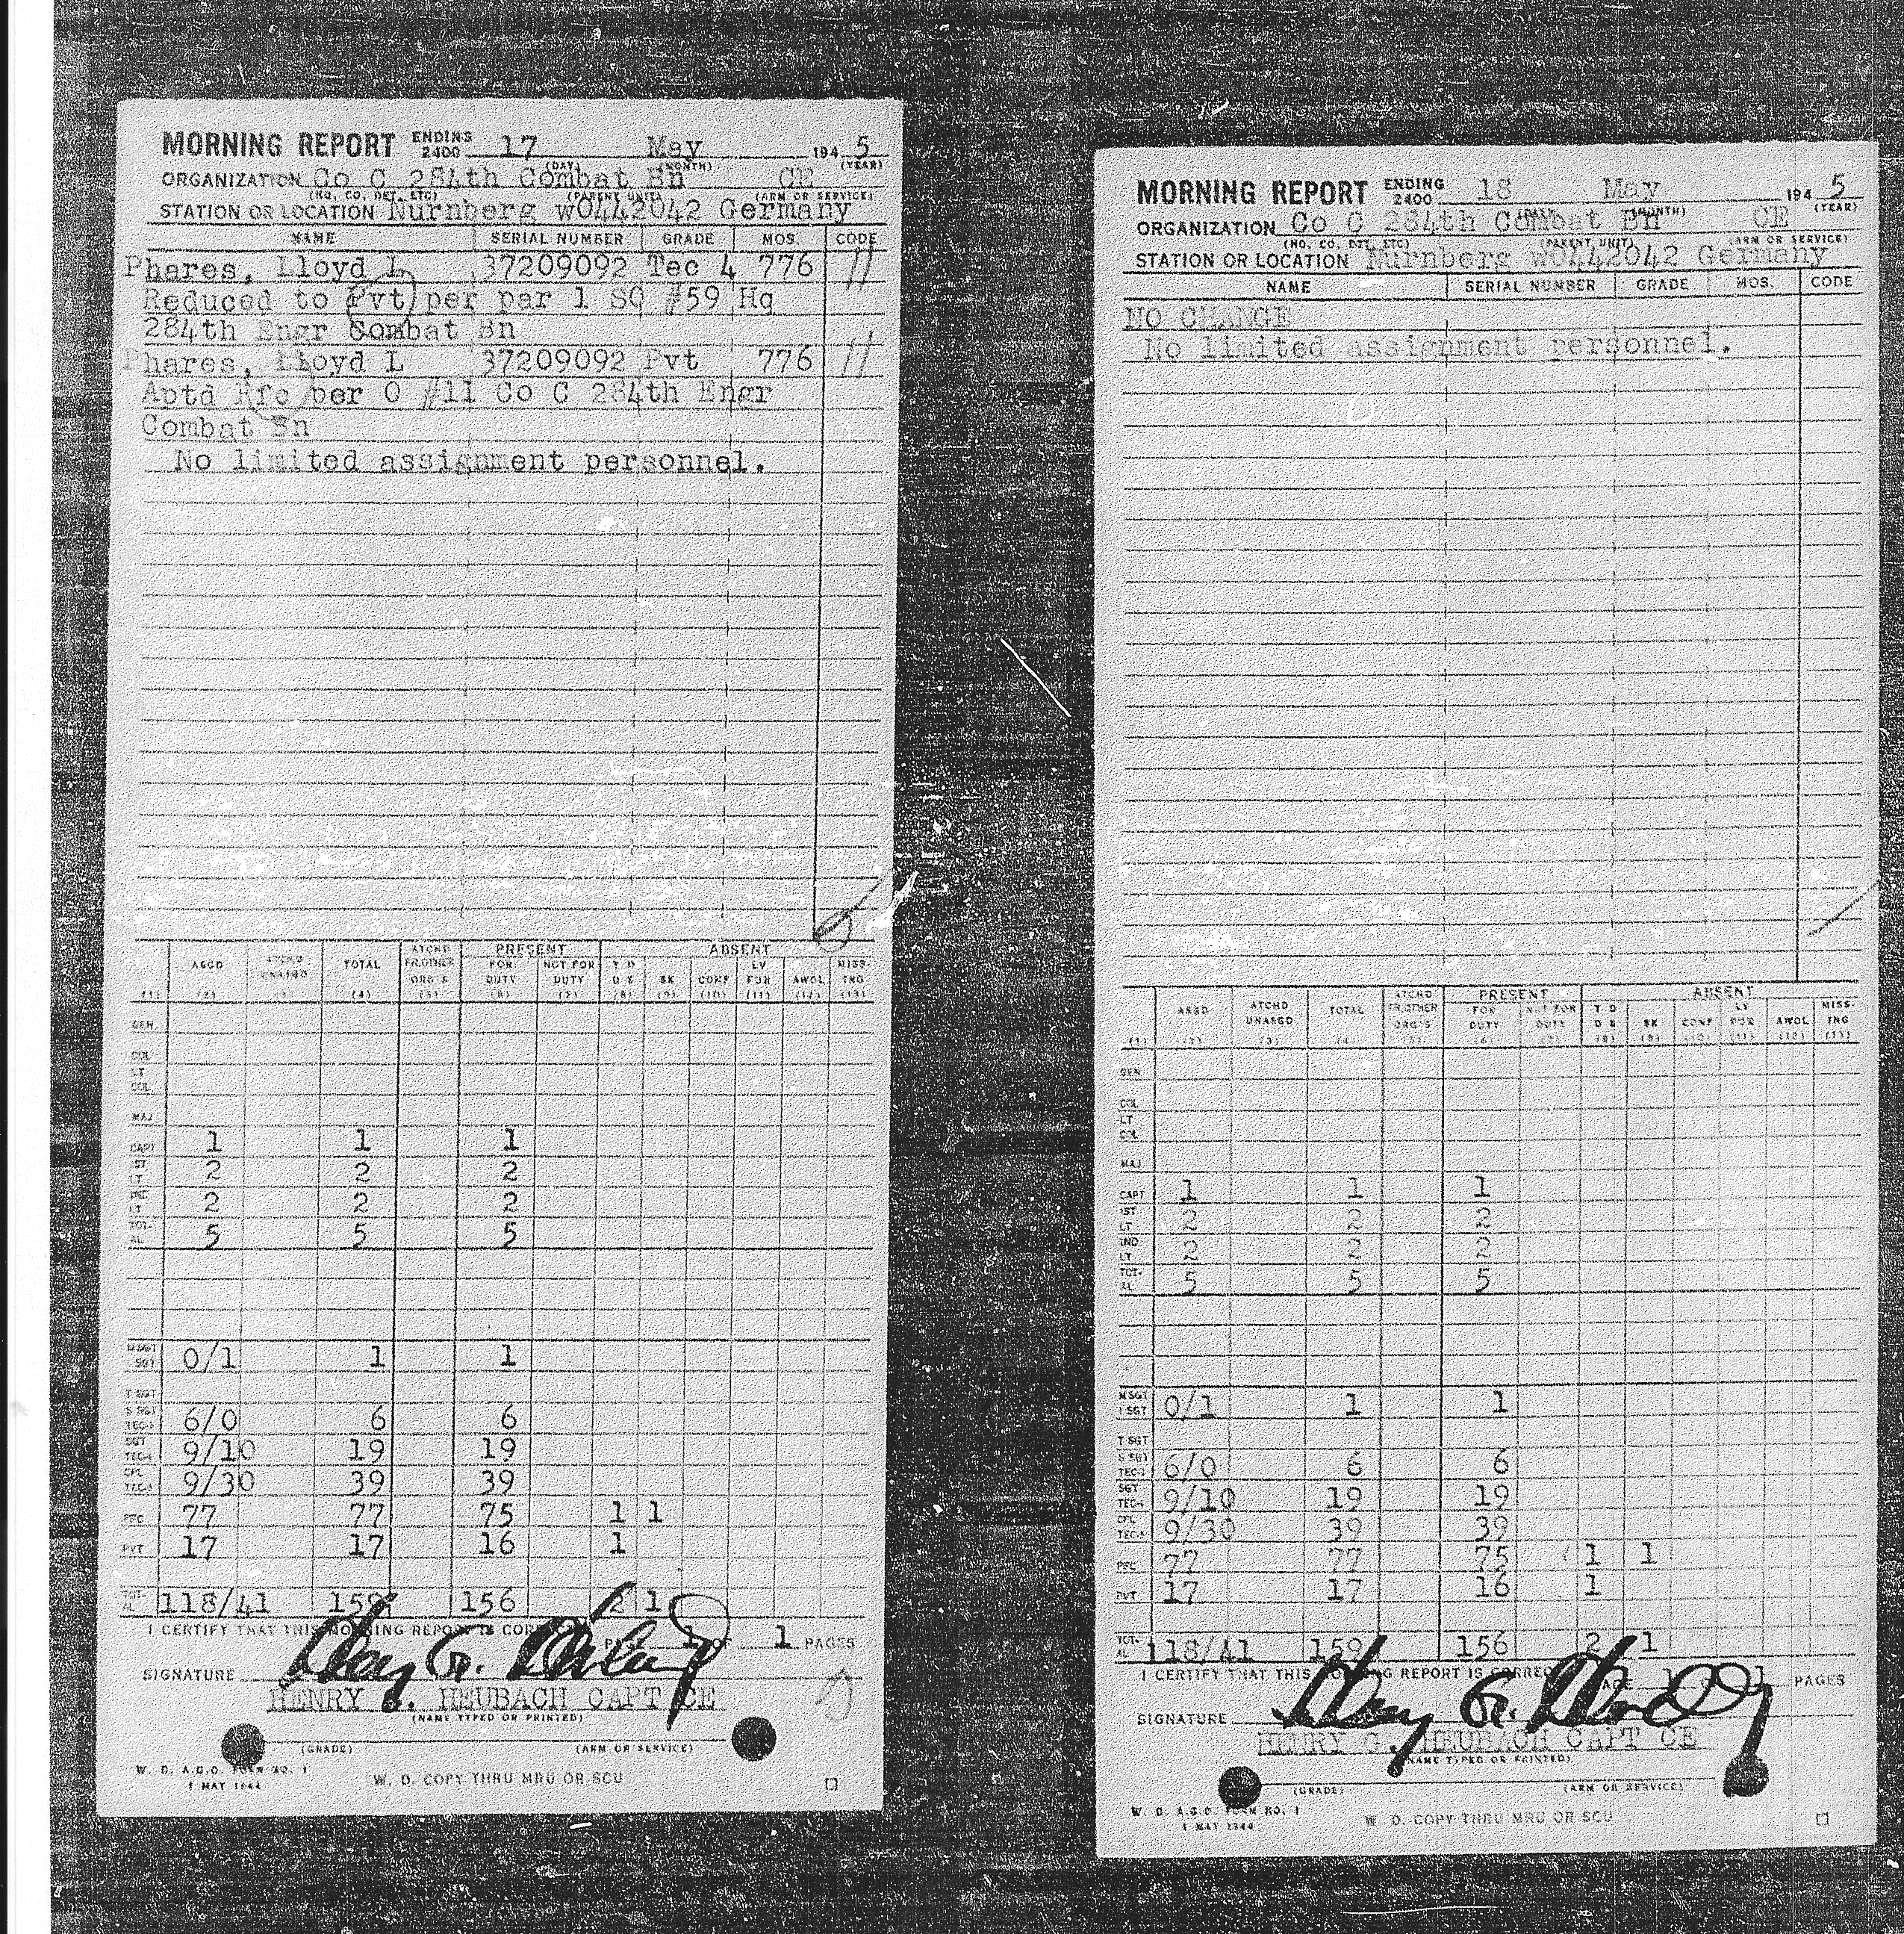 MORNING REPORT ENDING 2400 17 May 194 5
(DAY) (MONTH) (YEAR)
ORGANIZATION Co C 284th Combat Bn CE
(HQ, CO, DET, ETC) (PARENT UNIT) (ARM OR SERVICE)
STATION OR LOCATION Nurnberg wO442042 Germany
NAME SERIAL NUMBER GRADE MOS. CODE
Phares, Lloyd L 37209092 Tec 4 776 //
Reduced to Pvt per par 1 SO #59 Hq
284th Engr Combat Bn
Phares, Lloyd L 37209092 Pvt 776 //
Aptd Rfc per O #11 Co C 284th Engr
Combat Bn
No limited assignment personnel.
PRESENT ABSENT
ASGD ATCHD UNASGD TOTAL ATCHD FR OTHER ORG'S FOR DUTY NOT FOR DUTY T D D S SK CONF LV FUR AWOL MISS-ING
(1) (2) (3) (4) (5) (6) (7) (8) (9) (10) (11) (12) (13)
GEN
COL
LT COL
MAJ
CAPT 1 1 1
1ST LT 2 2 2
2ND LT 2 2 2
TOT-AL 5 5 5
M SGT 1 SGT 0/1 1 1
T SGT
S SGT TEC-3 6/0 6 6
SGT TEC-4 9/10 19 19
CPL TEC-5 9/30 39 39
PFC 77 77 75 1 1
PVT 17 17 16 1
TOT-AL 118/41 159 156 2 1
I CERTIFY THAT THIS MORNING REPORT IS CORRECT PAGE 1 OF 1 PAGES
SIGNATURE Henry G. Heubach
HENRY G. HEUBACH CAPT CE
(NAME TYPED OR PRINTED)
(GRADE) (ARM OR SERVICE)
W. D. A.G.O. FORM NO. 1
1 MAY 1944
W. D. COPY THRU MRU OR SCU
MORNING REPORT ENDING 2400 18 May 194 5
(DAY) (MONTH) (YEAR)
ORGANIZATION Co C 284th Combat Bn CE
(HQ, CO, DET, ETC) (PARENT UNIT) (ARM OR SERVICE)
STATION OR LOCATION Nurnberg wO442042 Germany
NAME SERIAL NUMBER GRADE MOS. CODE
NO CHANGE
No limited assignment personnel.
PRESENT ABSENT
ASGD ATCHD UNASGD TOTAL ATCHD FR OTHER ORG'S FOR DUTY NOT FOR DUTY T D D S SK CONF LV FUR AWOL MISS-ING
(1) (2) (3) (4) (5) (6) (7) (8) (9) (10) (11) (12) (13)
GEN
COL
LT COL
MAJ
CAPT 1 1 1
1ST LT 2 2 2
2ND LT 2 2 2
TOT-AL 5 5 5
M SGT 1 SGT 0/1 1 1
T SGT
S SGT TEC-3 6/0 6 6
SGT TEC-4 9/10 19 19
CPL TEC-5 9/30 39 39
PFC 77 77 75 1 1
PVT 17 17 16 1
TOT-AL 118/41 159 156 2 1
I CERTIFY THAT THIS MORNING REPORT IS CORRECT PAGE 1 OF 1 PAGES
SIGNATURE Henry G. Heubach
HENRY G. HEUBACH CAPT CE
(NAME TYPED OR PRINTED)
(GRADE) (ARM OR SERVICE)
W. D. A.G.O. FORM NO. 1
1 MAY 1944
W. D. COPY THRU MRU OR SCU